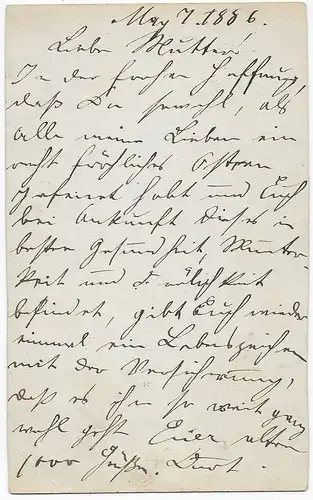 May 7. 1886.
Liebe Mutter!
In der frohen Hoffnung,
daß Du sowohl, als
alle meine Lieben ein
recht fröhliches Ostern
gefeiert habt und Euch
bei Ankunft dieses in
bester Gesundheit, Munter-
keit und Frölichkeit
befindet, gibt Euch wieder
einmal ein Lebenszeichen
mit der Versicherung,
daß es ihm so weit ganz
wohl geht Euer alter
1000 Grüße.